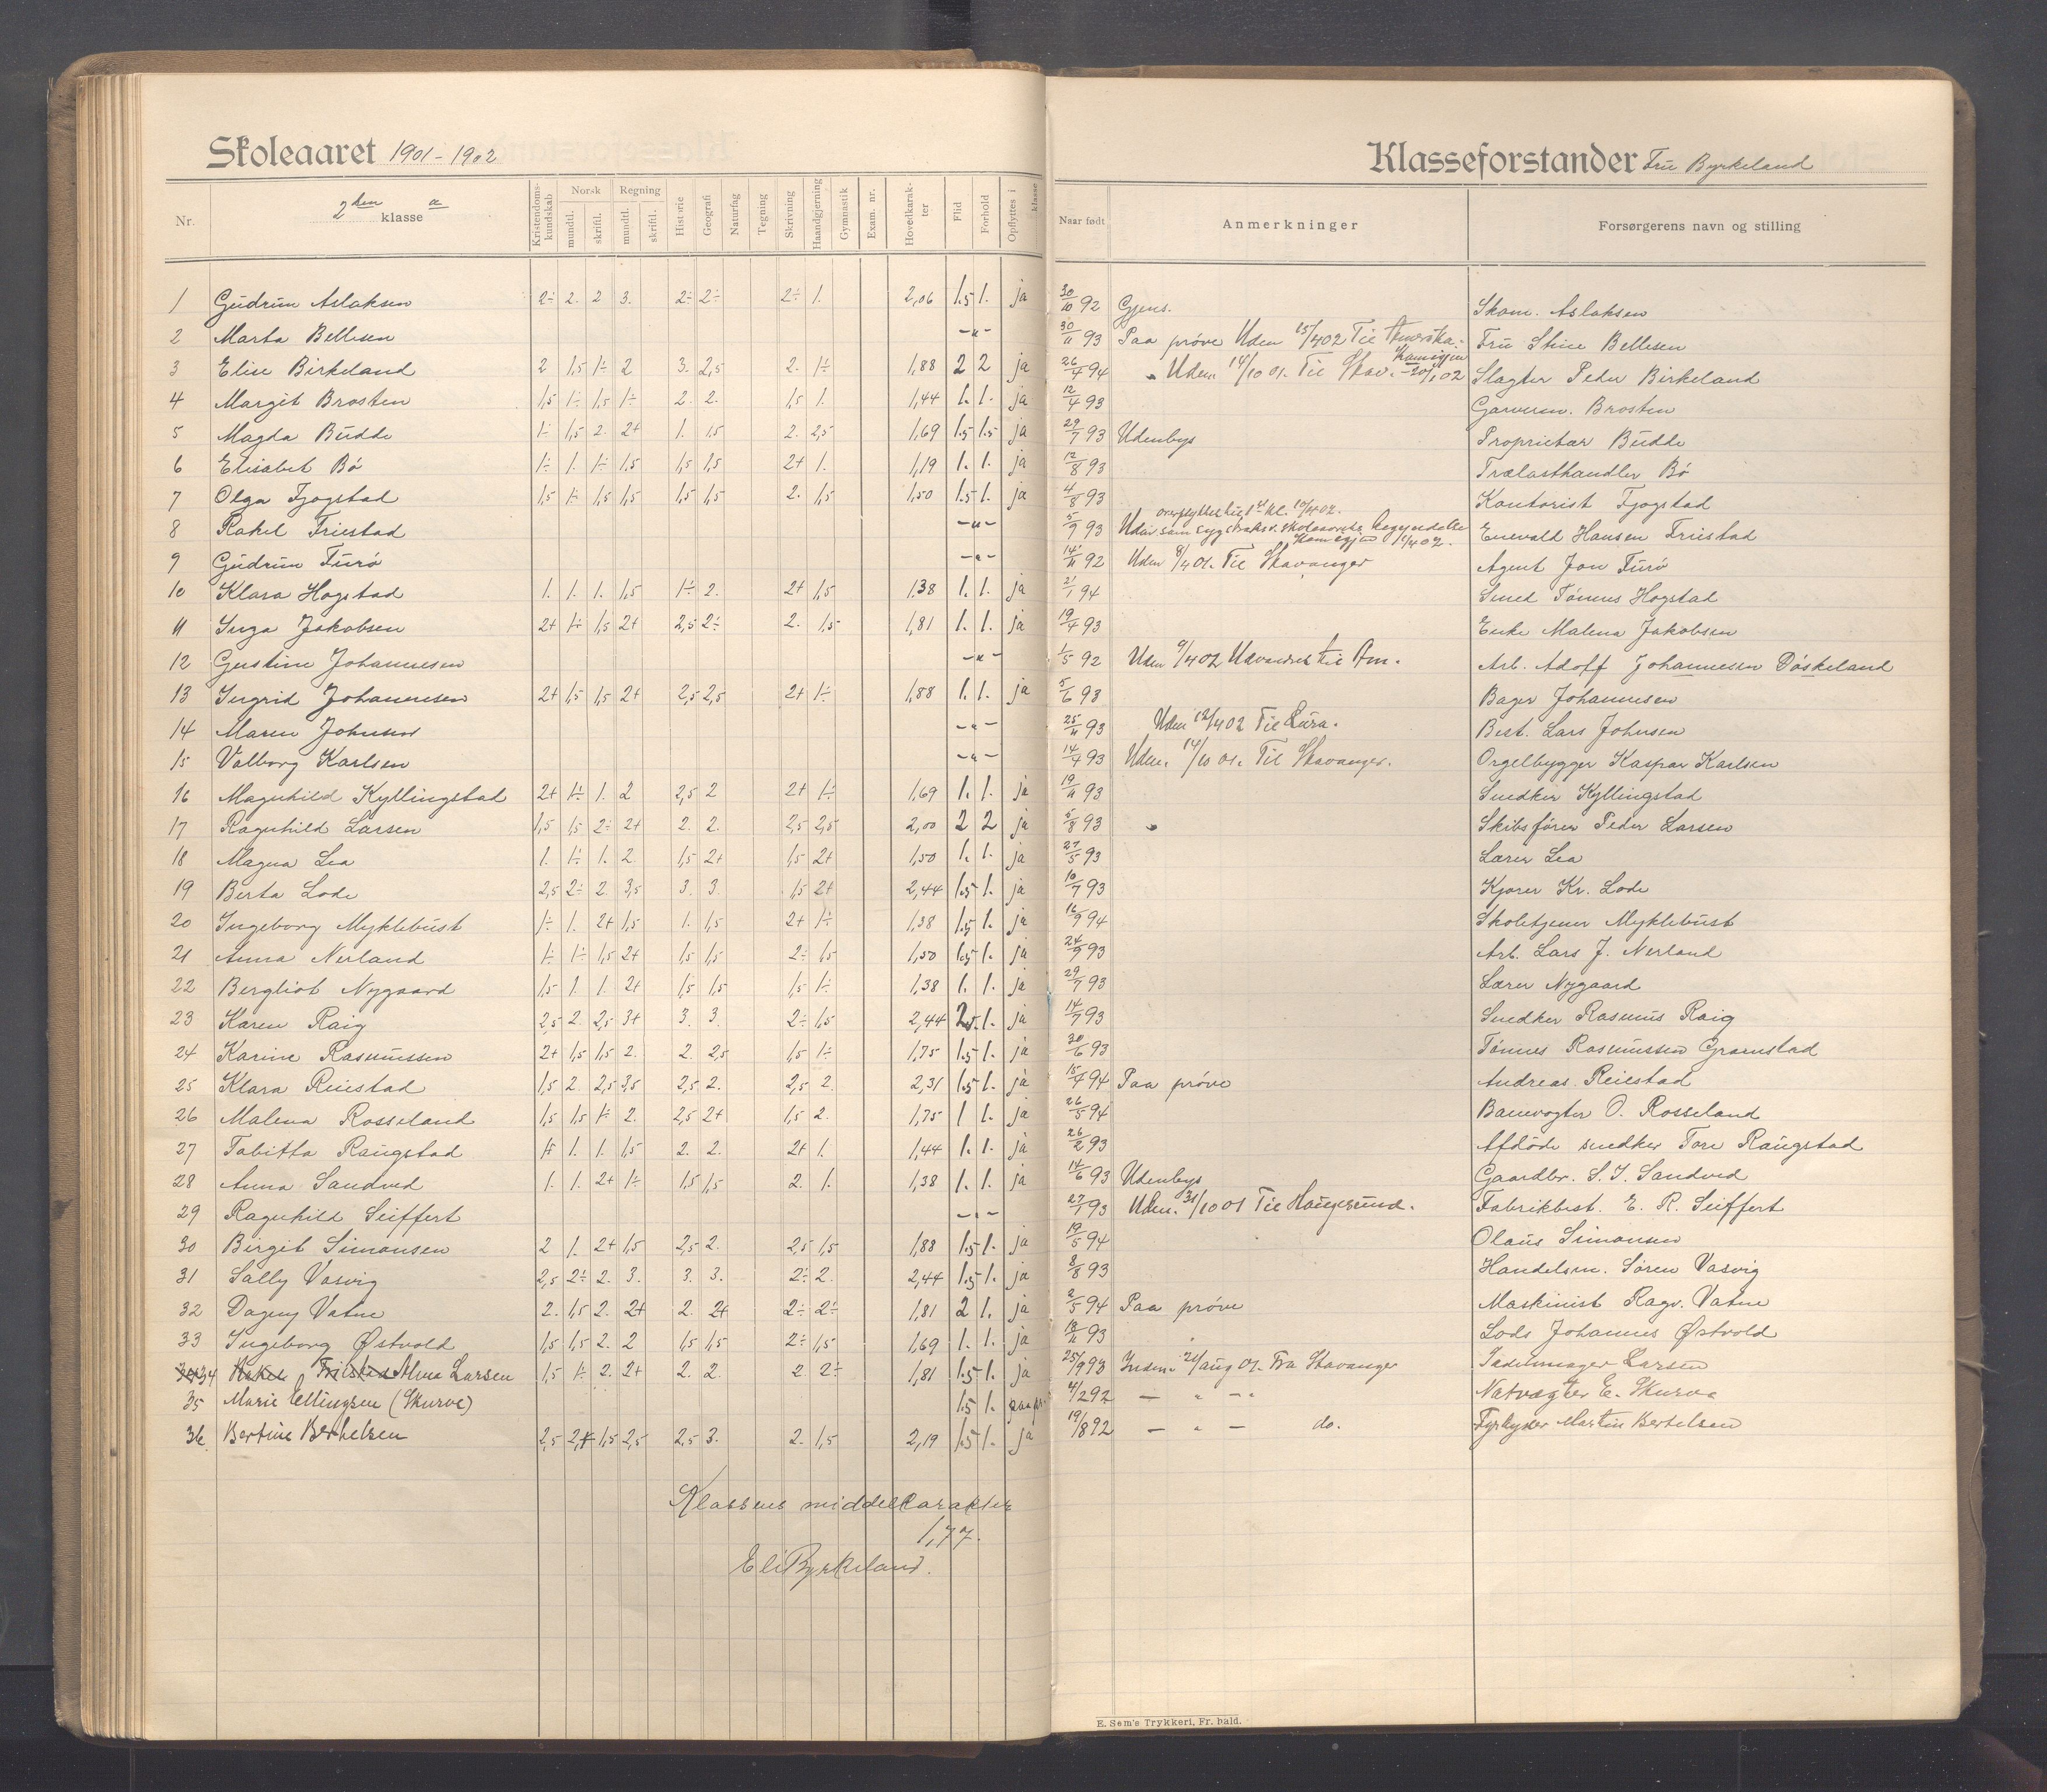 Skoleaaret 1901-1902
Klasseforstander Fru Byrkeland
Nr. 2den klasse a Kristendomskundskab Norsk mundtl. skriftl. Regning mundtl. skriftl. Historie Geografi Naturfag Tegning Skrivning Haandgjerning Gymnastik Exam. nr. Hovedkarakter Flid Forhold Opflyttes i klasse Naar født Anmerkninger Forsørgerens navn og stilling
1 Gudrun Aslaksen 2÷ 2. 2 3. 2÷ 2÷ 2÷ 1. 2,06 1.5 1. ja 30/10 92 Gjens. Skom. Aslaksen
2 Marta Bellesen -"- 30/11 93 Paa prøve Udm 15/4 02 Til Amerika. Fru Stine Bellesen
3 Elise Birkeland 2 1,5 1÷ 2 3. 2,5 2. 1÷ 1,88 2 2 ja 26/4 94 Udm. 14/10 01. Til Stav. Kom igjen 20/1 02 Slagter Peder Birkeland
4 Margit Brosten 1,5 1÷ 1,5 1÷ 2. 2. 1,5 1. 1,44 1. 1. ja 12/4 93 Garverm. Brosten
5 Magda Budde 1÷ 1,5 2. 2+ 1. 1,5 2. 2,5 1,69 1.5 1.5 ja 29/7 93 Udenbys Proprietær Budde
6 Elisabet Bø 1÷ 1. 1÷ 1,5 1,5 1,5 2+ 1. 1,19 1. 1. ja 12/8 93 Trælasthandler Bø
7 Olga Fjogstad 1,5 1÷ 1,5 1,5 1,5 1,5 2. 1,5 1,50 1.5 1. ja 4/8 93 Kontorist Fjogstad
8 Rakel Friestad -"- 5/9 93 overflyttet til 1ste kl. 10/4 02. Udm som syg straks v. skoleaarets begyndelse Kom igjen 1/4 02. Enevald Hansen Friestad
9 Gudrun Furø -"- 14/11 92 Udm 9/4 01. Til Stavanger Agent Jon Furø
10 Klara Hogstad 1. 1. 1. 1,5 1÷ 2. 2+ 1,5 1.38 1. 1. ja 21/1 94 Smed Tønnes Hogstad
11 Inga Jakobsen 2+ 1÷ 1,5 2+ 2,5 2÷ 2. 1,5 1,81 1. 1. ja 19/4 93 Enke Malena Jakobsen
12 Gustine Johannesen -"- 1/5 92 Udm 9/4 02 Udvandret til Am. Arb. Adolf Johannesen Døskeland
13 Ingrid Johannesen 2+ 1,5 1,5 2+ 2,5 2,5 2+ 1÷ 1,88 1. 1. ja 5/6 93 Bager Johannesen
14 Maren Johnsen -"- 25/11 93 Udm 12/4 02 Til Lura. Best. Lars Johnsen
15 Valborg Karlsen -"- 14/4 93 Udm. 14/10 01. Til Stavanger. Orgelbygger Kaspar Karlsen
16 Magnhild Kyllingstad 2+ 1÷ 1. 2 2,5 2 2+ 1÷ 1,69 1. 1. ja 19/11 93 Snedker Kyllingstad
17 Ragnhild Larsen 1,5 1,5 2÷ 2+ 2. 2. 2,5 2,5 2,00 2 2 ja 5/8 93 Skibsfører Peder Larsen
18 Magna Lea 1. 1÷ 1. 2. 1,5 2+ 1,5 2+ 1,50 1. 1. ja 27/5 93 Lærer Lea
19 Berta Lode 2,5 2÷ 2. 3,5 3. 3. 1,5 2+ 2,44 1.5 1. ja 10/7 93 Kjører Kr. Lode
20 Ingeborg Myklebust 1÷ 1. 2+ 1,5 1. 1,5 2+ 1÷ 1,38 1.5 1. ja 16/9 94 Skoletjener Myklebust
21 Anna Nerland 1÷ 1÷ 1,5 2+ 1,5 1,5 2÷ 1,5 1,50 1.5 1. ja 24/9 93 Arb. Lars J. Nerland
22 Bergliot Nygaard 1,5 1. 1. 2+ 1,5 1,5 1,5 1÷ 1,38 1. 1. ja 29/7 93 Lærer Nygaard
23 Karen Raig 2,5 2. 2,5 3+ 3. 3. 2÷ 1,5 2,44 2.5. 1. ja 14/7 93 Snedker Rasmus Raig
24 Karine Rasmussen 2+ 1,5 1,5 2. 2. 2,5 1,5 1÷ 1,75 1.5 1. ja 30/6 93 Tønnes Rasmussen Gramstad
25 Klara Reiestad 1,5 2. 2,5 3,5 2,5 2. 2,5 2. 2,31 1.5 1. ja 15/4 94 Paa prøve Andreas Reiestad
26 Malena Rosseland 1,5 1,5 1÷ 2. 2,5 2+ 1,5 2. 1,75 1 1. ja 26/5 94 Banevogter O. Rosseland
27 Tabitta Raugstad 1. 1. 1,5 2. 2. 2+ 1. 1,44 1. 1. ja 26/2 93 Afdøde snedker Tore Raugstad
28 Anna Sandved 1. 1. 2+ 1÷ 1,5 1,5 2. 1. 1,38 1. 1. ja 14/6 93 Udenbys Gaardbr. S. I. Sandved
29 Ragnhild Seiffert -"- 27/1 93 Udm. 31/10 01 Til Haugesund. Fabrikbest. E. R. Seiffert
30 Birgit Simonsen 2 1. 2+ 1,5 2,5 2. 2,5 1,5 1,88 1.5 1. ja 19/5 94 Olaus Simonsen
31 Sally Vasvig 2,5 2÷ 2. 3. 3. 3. 2÷ 2. 2,44 1.5 1. ja 8/8 93 Handelsm. Søren Vasvig
32 Dagny Vatne 2. 1,5 2. 2+ 2. 2+ 2÷ 2÷ 1,81 2 1. ja 2/5 94 Paa prøve Maskinist Ragv. Vatne
33 Ingeborg Østvold 1,5 1,5 2. 2 1,5 1,5 2÷ 1,5 1,69 1. 1. ja 18/11 93 Lods Johannes Østvold
34 Rakel Friestad Alma Larsen 1,5 1÷ 2. 2+ 2. 2. 2 2÷ 1,81 1.5 1. ja 25/9 93 Indm. 21/aug 01. Fra Stavanger Sadelmager Larsen
35 Marie Ellingsen (Skurve) 1.5 1. paa pr. 4/2 92 - " - " Natvægter E. Skurve
36 Bertine Berthelsen 2,5 2,+ 1,5 2,5 2,5 3. 2. 1,5 2,19 1.5 1. ja 19/8 92 - " - do. Fyrbyder Martin Bertelsen
Klassens middelkarakter
1,77.
Eli Byrkeland.
E. Sem's Trykkeri, Fr. hald.